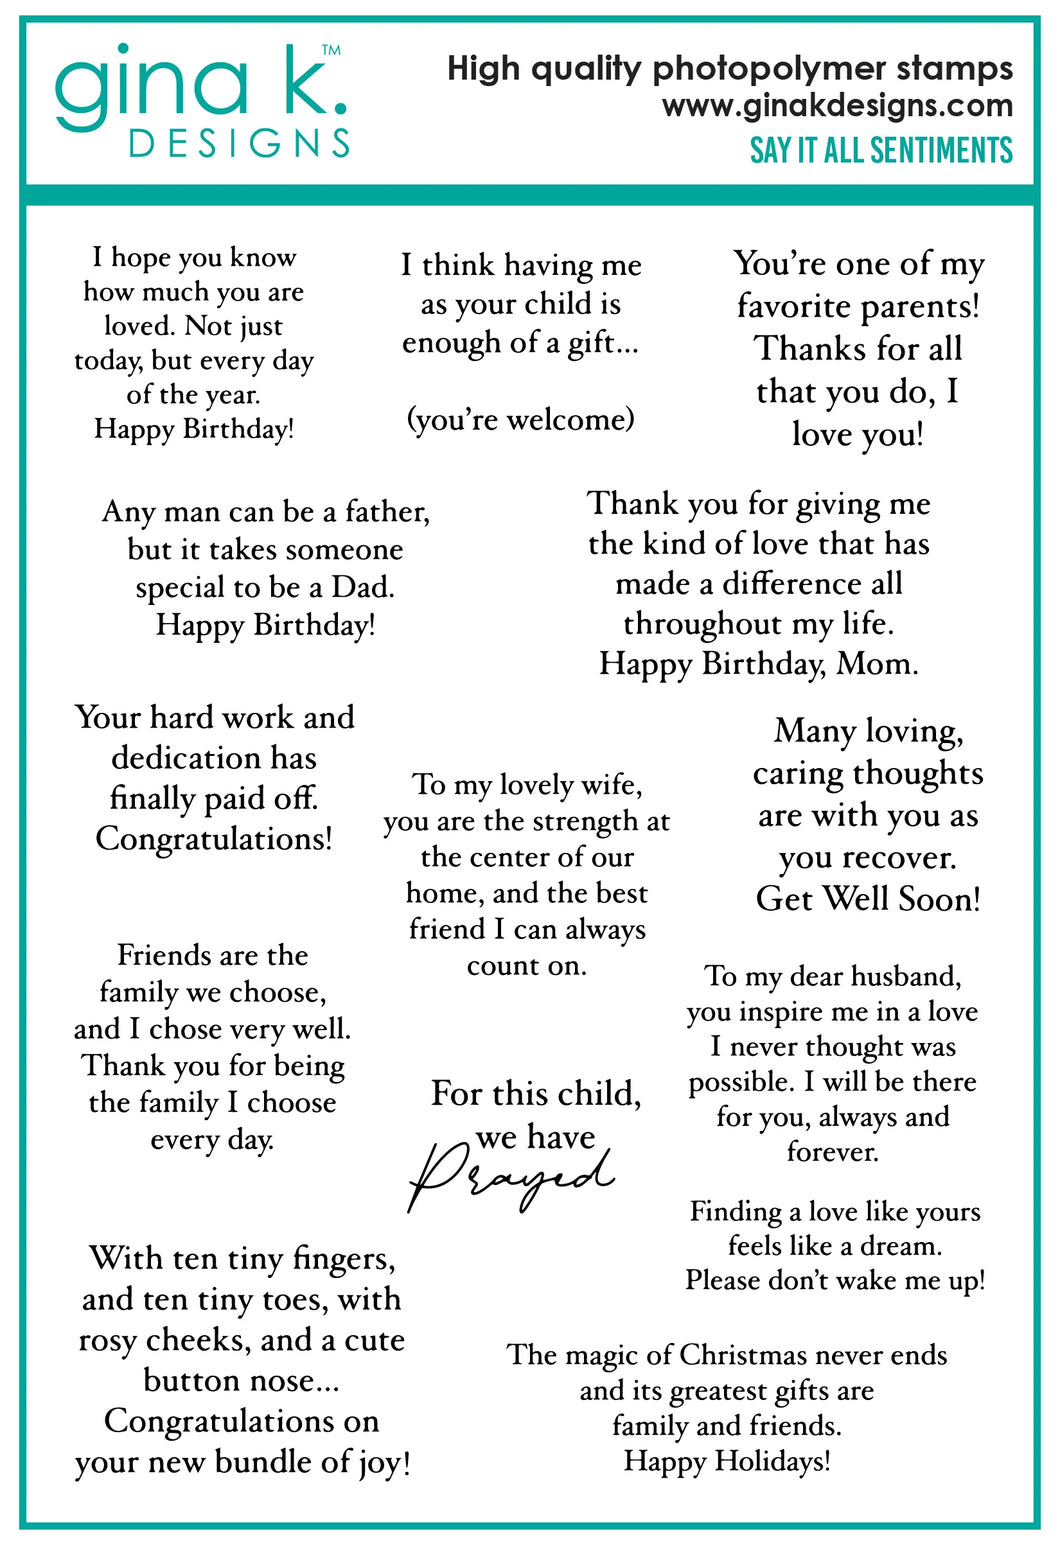 gina k.™
DESIGNS
High quality photopolymer stamps
www.ginakdesigns.com
SAY IT ALL SENTIMENTS
I hope you know
how much you are
loved. Not just
today, but every day
of the year.
Happy Birthday!
I think having me
as your child is
enough of a gift...
(you're welcome)
You're one of my
favorite parents!
Thanks for all
that you do, I
love you!
Any man can be a father,
but it takes someone
special to be a Dad.
Happy Birthday!
Thank you for giving me
the kind of love that has
made a difference all
throughout my life.
Happy Birthday, Mom.
Your hard work and
dedication has
finally paid off.
Congratulations!
To my lovely wife,
you are the strength at
the center of our
home, and the best
friend I can always
count on.
Many loving,
caring thoughts
are with you as
you recover.
Get Well Soon!
Friends are the
family we choose,
and I chose very well.
Thank you for being
the family I choose
every day.
To my dear husband,
you inspire me in a love
I never thought was
possible. I will be there
for you, always and
forever.
For this child,
we have
Prayed
Finding a love like yours
feels like a dream.
Please don't wake me up!
With ten tiny fingers,
and ten tiny toes, with
rosy cheeks, and a cute
button nose...
Congratulations on
your new bundle of joy!
The magic of Christmas never ends
and its greatest gifts are
family and friends.
Happy Holidays!